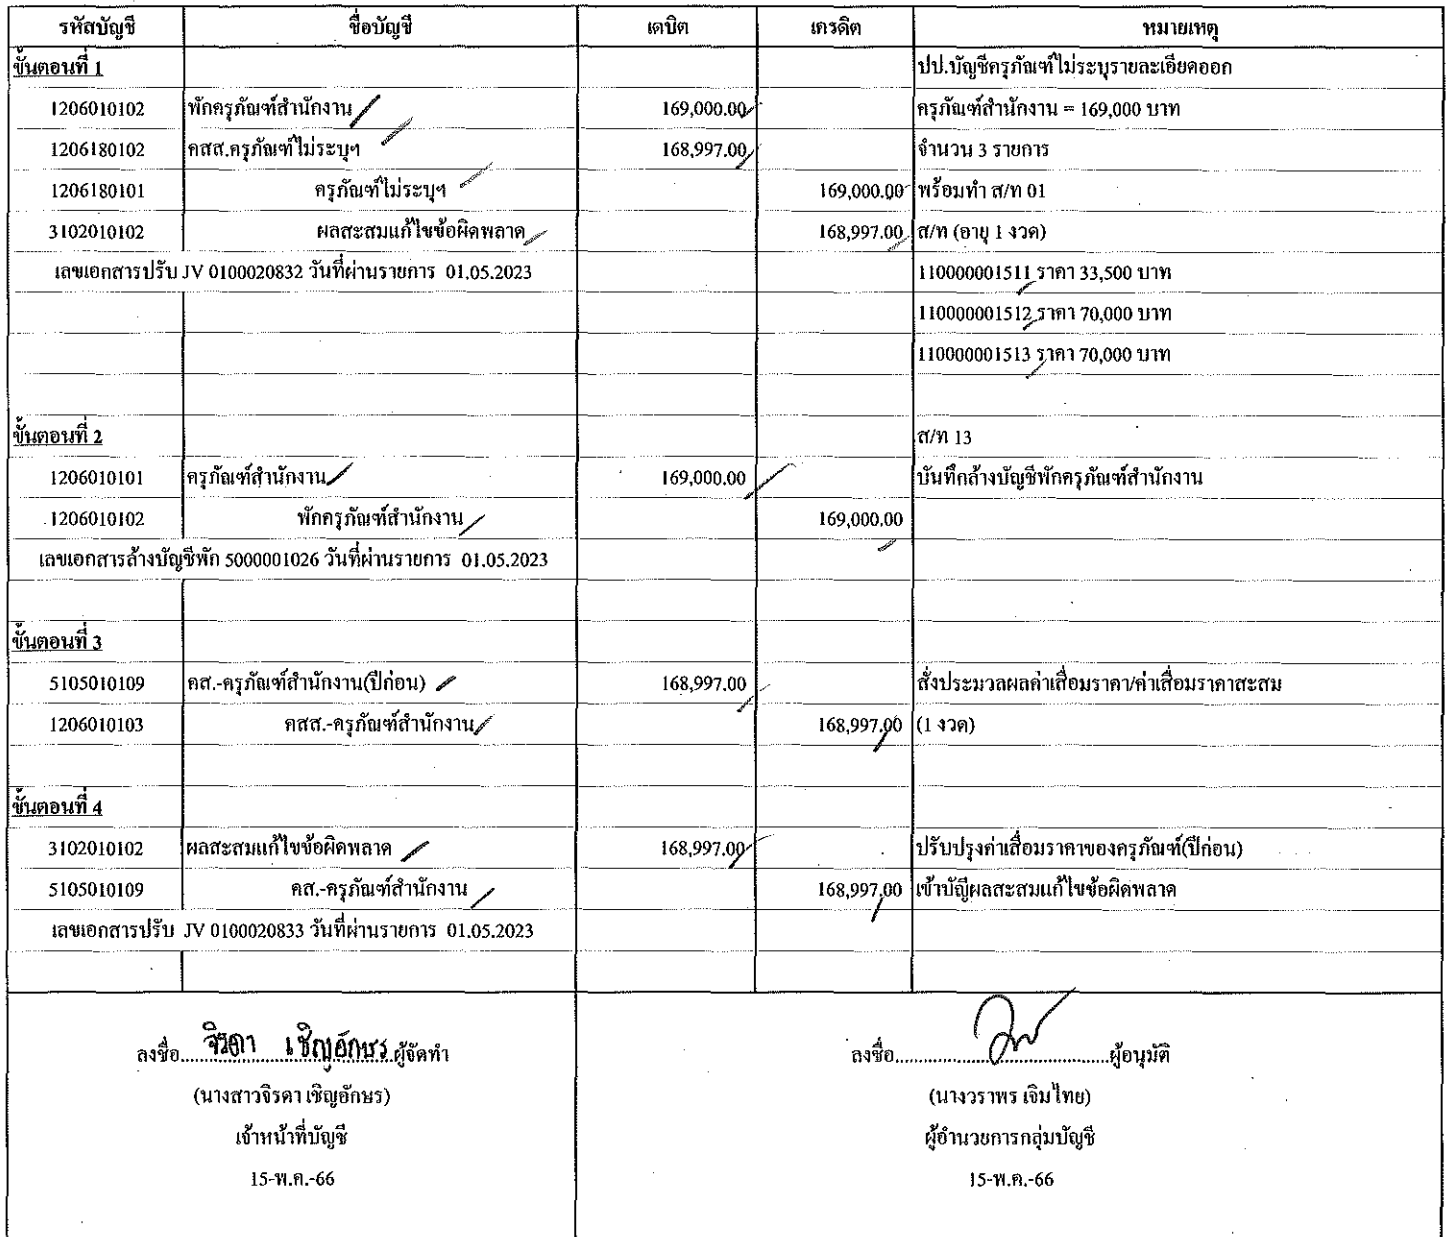 รหัสบัญชี ชื่อบัญชี เดบิต เครดิต หมายเหตุ
ขั้นตอนที่ 1 ปป.บัญชีครุภัณฑ์ไม่ระบุรายละเอียดออก
1206010102 พักครุภัณฑ์สำนักงาน 169,000.00 ครุภัณฑ์สำนักงาน = 169,000 บาท
1206180102 คสส.ครุภัณฑ์ไม่ระบุฯ 168,997.00 จำนวน 3 รายการ
1206180101 ครุภัณฑ์ไม่ระบุฯ 169,000.00 พร้อมทำ ส/ท 01
3102010102 ผลสะสมแก้ไขข้อผิดพลาด 168,997.00 ส/ท (อายุ 1 งวด)
เลขเอกสารปรับ JV 0100020832 วันที่ผ่านรายการ 01.05.2023 110000001511 ราคา 33,500 บาท
110000001512 ราคา 70,000 บาท
110000001513 ราคา 70,000 บาท
ขั้นตอนที่ 2 ส/ท 13
1206010101 ครุภัณฑ์สำนักงาน 169,000.00 บันทึกล้างบัญชีพักครุภัณฑ์สำนักงาน
1206010102 พักครุภัณฑ์สำนักงาน 169,000.00
เลขเอกสารล้างบัญชีพัก 5000001026 วันที่ผ่านรายการ 01.05.2023
ขั้นตอนที่ 3
5105010109 คส.-ครุภัณฑ์สำนักงาน(ปีก่อน) 168,997.00 สั่งประมวลผลค่าเสื่อมราคา/ค่าเสื่อมราคาสะสม
1206010103 คสส.-ครุภัณฑ์สำนักงาน 168,997.00 (1 งวด)
ขั้นตอนที่ 4
3102010102 ผลสะสมแก้ไขข้อผิดพลาด 168,997.00 ปรับปรุงค่าเสื่อมราคาของครุภัณฑ์(ปีก่อน)
5105010109 คส.-ครุภัณฑ์สำนักงาน 168,997.00 เข้าบัญีผลสะสมแก้ไขข้อผิดพลาด
เลขเอกสารปรับ JV 0100020833 วันที่ผ่านรายการ 01.05.2023
ลงชื่อ จิรดา เชิญอักษร ผู้จัดทำ ลงชื่อ ผู้อนุมัติ
(นางสาวจิรดา เชิญอักษร) (นางวราพร เจิมไทย)
เจ้าหน้าที่บัญชี ผู้อำนวยการกลุ่มบัญชี
15-พ.ค.-66 15-พ.ค.-66